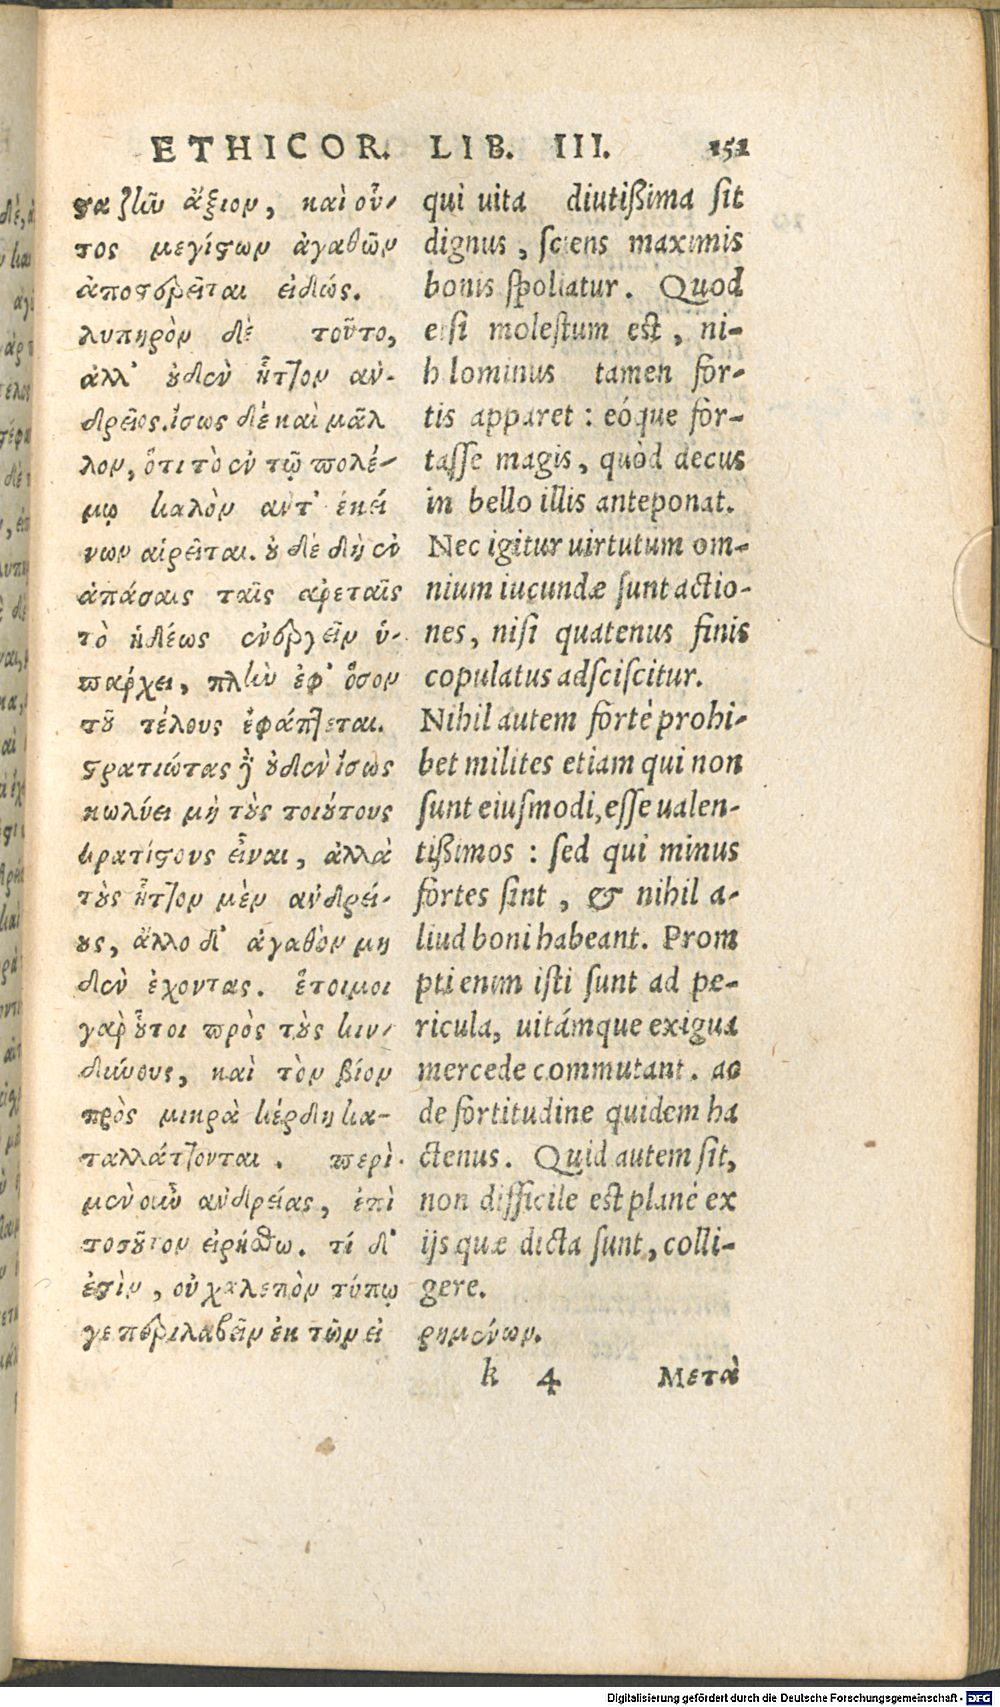 ETHICOR. LIB. III. 151
ϛα ζῆν ἄξιον, καὶ οὗ-
τος μεγίϛων ἀγαθῶν
ἀποϛερεῖται εἰδώς.
λυπηρὸν δὲ τοῦτο,
ἀλλ' οὐδὲν ἧττον ἀν-
δρεῖος. ἴσως δὲ καὶ μᾶλ
λον, ὅτι τὸ ἐν τῷ πολέ-
μῳ καλὸν ἀντ' ἐκεί
νων αἱρεῖται. οὐ δὲ δὴ ἐν
ἁπάσαις ταῖς ἀρεταῖς
τὸ ἡδέως ἐνεργεῖν ὑ-
πάρχει, πλὴν ἐφ' ὅσον
τοῦ τέλους ἐφάπτεται.
ϛρατιώτας δ' οὐδὲν ἴσως
κωλύει μὴ τοὺς τοιούτους
κρατίϛους εἶναι, ἀλλὰ
τοὺς ἧττον μὲν ἀνδρεί-
ους, ἄλλο δ' ἀγαθὸν μη
δὲν ἔχοντας. ἕτοιμοι
γὰρ οὗτοι πρὸς τοὺς κιν-
δύνους, καὶ τὸν βίον
πρὸς μικρὰ κέρδη κα-
ταλλάττονται. περὶ
μὲν οὖν ἀνδρείας, ἐπὶ
τοσοῦτον εἰρήσθω. τί δ'
ἐϛὶν, οὐ χαλεπὸν τύπῳ
γε περιλαβεῖν ἐκ τῶν εἰ
ρημένων.
qui uita diutißima sit
dignus, sciens maximis
bonis spoliatur. Quod
etsi molestum est, ni-
hilominus tamen for-
tis apparet: eóque for-
tasse magis, quòd decus
in bello illis anteponat.
Nec igitur uirtutum om-
nium iucundæ sunt actio-
nes, nisi quatenus finis
copulatus adsciscitur.
Nihil autem fortè prohi-
bet milites etiam qui non
sunt eiusmodi, esse ualen-
tißimos: sed qui minus
fortes sint, & nihil a-
liud boni habeant. Prom
pti enim isti sunt ad pe-
ricula, uitámque exigua
mercede commutant. ac
de fortitudine quidem ha
ctenus. Quid autem sit,
non difficile est planè ex
ijs quæ dicta sunt, colli-
gere.
k 4 Μετὰ
Digitalisierung gefördert durch die Deutsche Forschungsgemeinschaft - DFG